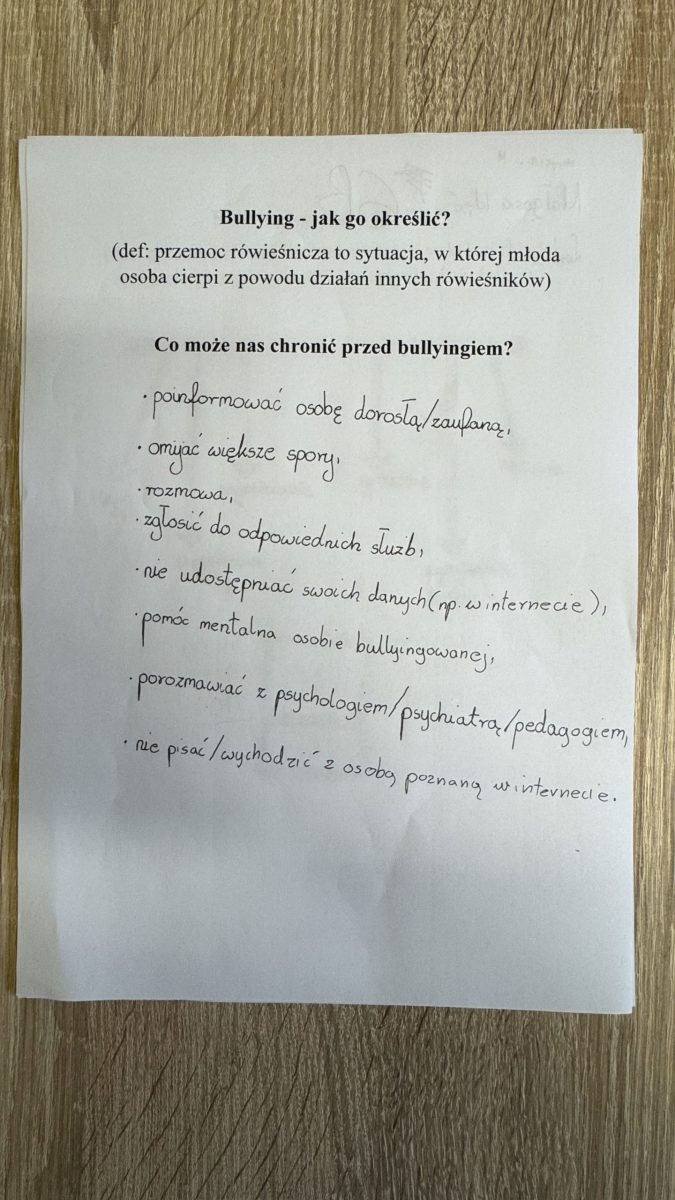 Bullying - jak go określić?
(def: przemoc rówieśnicza to sytuacja, w której młoda
osoba cierpi z powodu działań innych rówieśników)
Co może nas chronić przed bullyingiem?
· poinformować osobę dorosłą/zaufaną,
· omijać większe spory,
· rozmowa,
· zgłosić do odpowiednich służb,
· nie udostępniać swoich danych (np. w internecie),
· pomóc mentalna osobie bullyingowanej,
· porozmawiać z psychologiem/psychiatrą/pedagogiem,
· nie pisać/wychodzić z osobą poznaną w internecie.